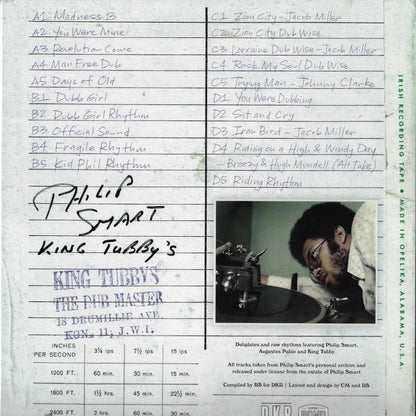 A1 Madness 13
A2 You Were Mine!
A3 Revolution Come
A4 Man Free Dub
A5 Days of Old
B1 Dubb Girl
B2 Dubb Girl Rhythm
B3 Official Sound
B4 Fragile Rhythm
B5 Kid Phil Rhythm
C1 Zion City - Jacob Miller
C2 Zion City Dub Wise
C3 Lorraine Dub Wise - Jacob Miller
C4 Rock My Soul Dub Wise
C5 Trying Man - Johnny Clarke
D1 You Were Dubbing
D2 Sit and Cry
D3 Iron Bird - Jacob Miller
D4 Riding on a High & Windy Day
- Breezy & Hugh Mundell (Alt Take)
D5 Riding Rhythm
IRISH RECORDING TAPE • MADE IN OPELIKA, ALABAMA, U.S.A.
PHILIP
SMART
KING TUBBY'S
KING TUBBYS
THE DUB MASTER
18 DROMILLIE AVE
KGN. 11, J.W.I.
INCHES PER SECOND 3¾ ips 7½ ips 15 ips
1200 FT. 60 min. 30 min. 15 min.
1800 FT. 1½ hrs. 45 min. 22½ min.
2400 FT. 2 hrs. 60 min. 30 min.
Dubplates and raw rhythms featuring Philip Smart,
Augustus Pablo and King Tubby
All tracks taken from Philip Smart's personal archive and
released under license from the estate of Philip Smart
Compiled by RB for DKR | Layout and design by CM and RB
DKR